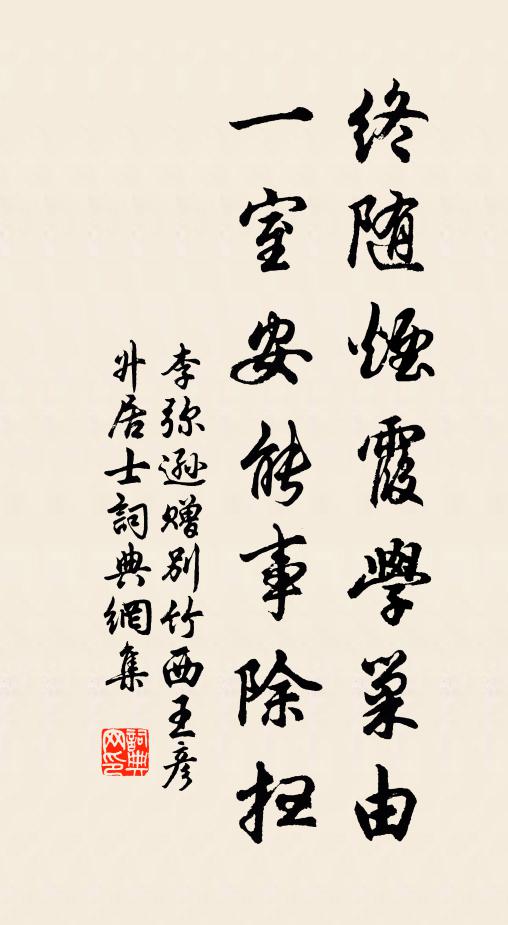 终随煙霞學巢由
一室安能事除扫
李弥逊赠别竹西王彦
升居士詞典網集
詞典网印